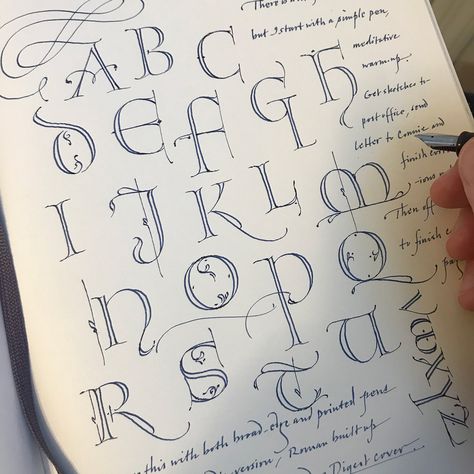 There
A B C
but I start with a simple pen,
meditative
warm-up.
D E F G H
Get sketches to
post office, send
letter to Connie and
finish
I J K L M
Then off
to finish
N O P Q
R S T U
V W X Y Z
this with both broad-edge and pointed pens
version, Roman built up
Digest cover